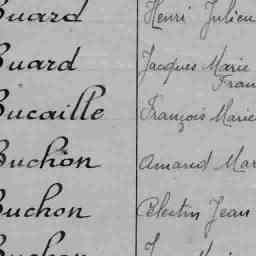 Buard Henri Julien
Buard Jacques Marie
Fran
Bucaille François Marie
Buchon Amand Mar
Buchon Célestin Jean
Buchon